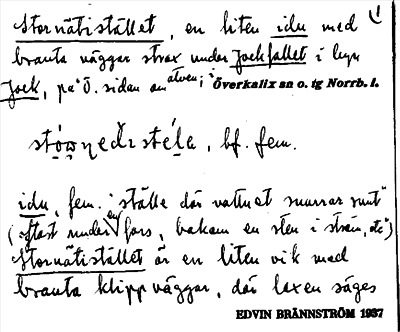 Stornätistället, en liten idu med
branta väggar strax under Jockfallet i byn
Jock, på ö. sidan om älven; i Överkalix sn o. tg Norrb. l.
bf. fem.
idu, fem. "ställe där vattnet snurrar runt"
(oftast under en fors, bakom en sten i ström, etc.")
Stornätistället är en liten vik med
branta klippväggar, där laxen säges
EDVIN BRÄNNSTRÖM 1937